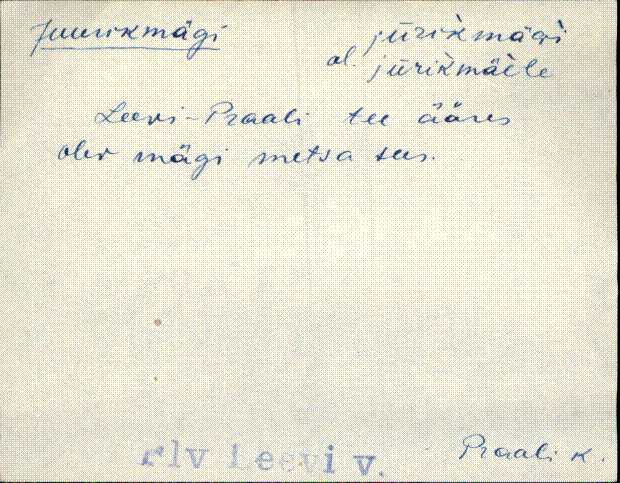 Juurikmägi jūrikmägi
al. jūrikmäele
Leevi-Praali tee ääres
olev mägi metsa sees.
Rlv Leevi v. Praali k.